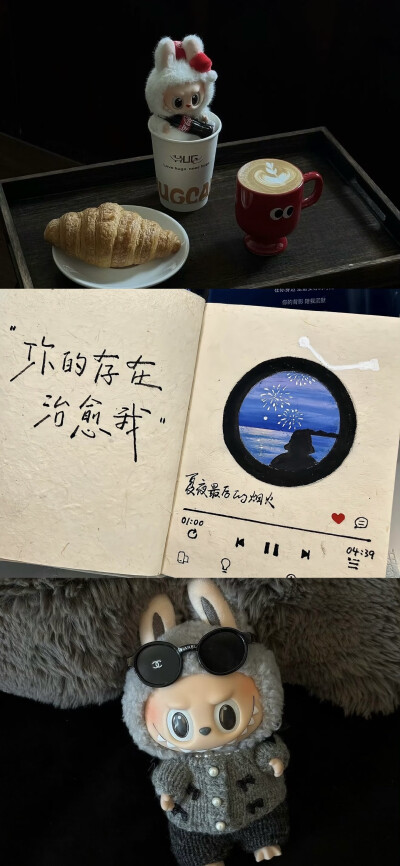 HUG
UGCO
“你的存在
治愈我”
夏夜最后的烟火
01:00
04:39